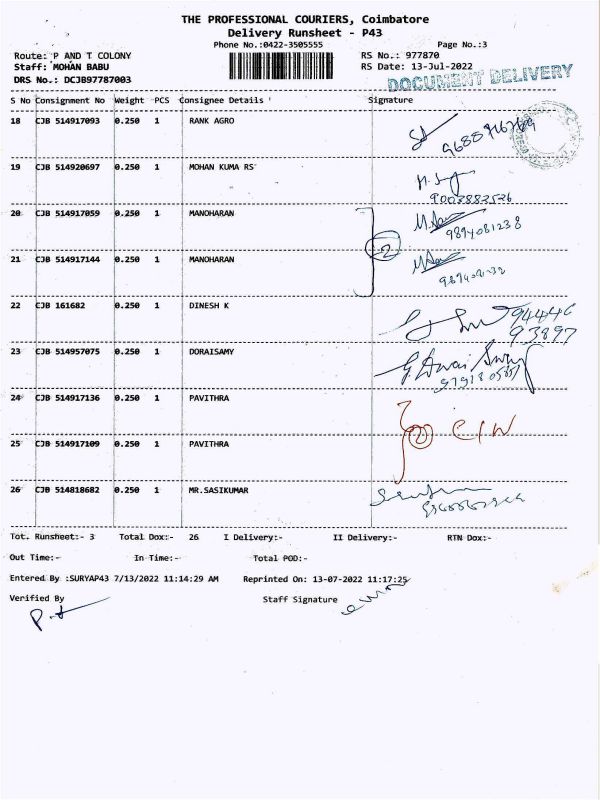 THE PROFESSIONAL COURIERS, Coimbatore
Delivery Runsheet - P43
Phone No.:0422-3505555 Page No.:3
Route: P AND T COLONY RS No.: 977870
Staff: MOHAN BABU RS Date: 13-Jul-2022
DRS No.: DCJB97787003 DOCUMENT DELIVERY
S No Consignment No Weight PCS Consignee Details Signature
18 CJB 514917093 0.250 1 RANK AGRO
19 CJB 514920697 0.250 1 MOHAN KUMA RS
9003883526
20 CJB 514917059 0.250 1 MANOHARAN
9894081238
2
21 CJB 514917144 0.250 1 MANOHARAN
22 CJB 161682 0.250 1 DINESH K 94446
93897
23 CJB 514957075 0.250 1 DORAISAMY
24 CJB 514917136 0.250 1 PAVITHRA
2 C/W
25 CJB 514917109 0.250 1 PAVITHRA
26 CJB 514818682 0.250 1 MR.SASIKUMAR
Tot. Runsheet:- 3 Total Dox:- 26 I Delivery:- II Delivery:- RTN Dox:-
Out Time:- In Time:- Total POD:-
Entered By :SURYAP43 7/13/2022 11:14:29 AM Reprinted On: 13-07-2022 11:17:25
Verified By Staff Signature